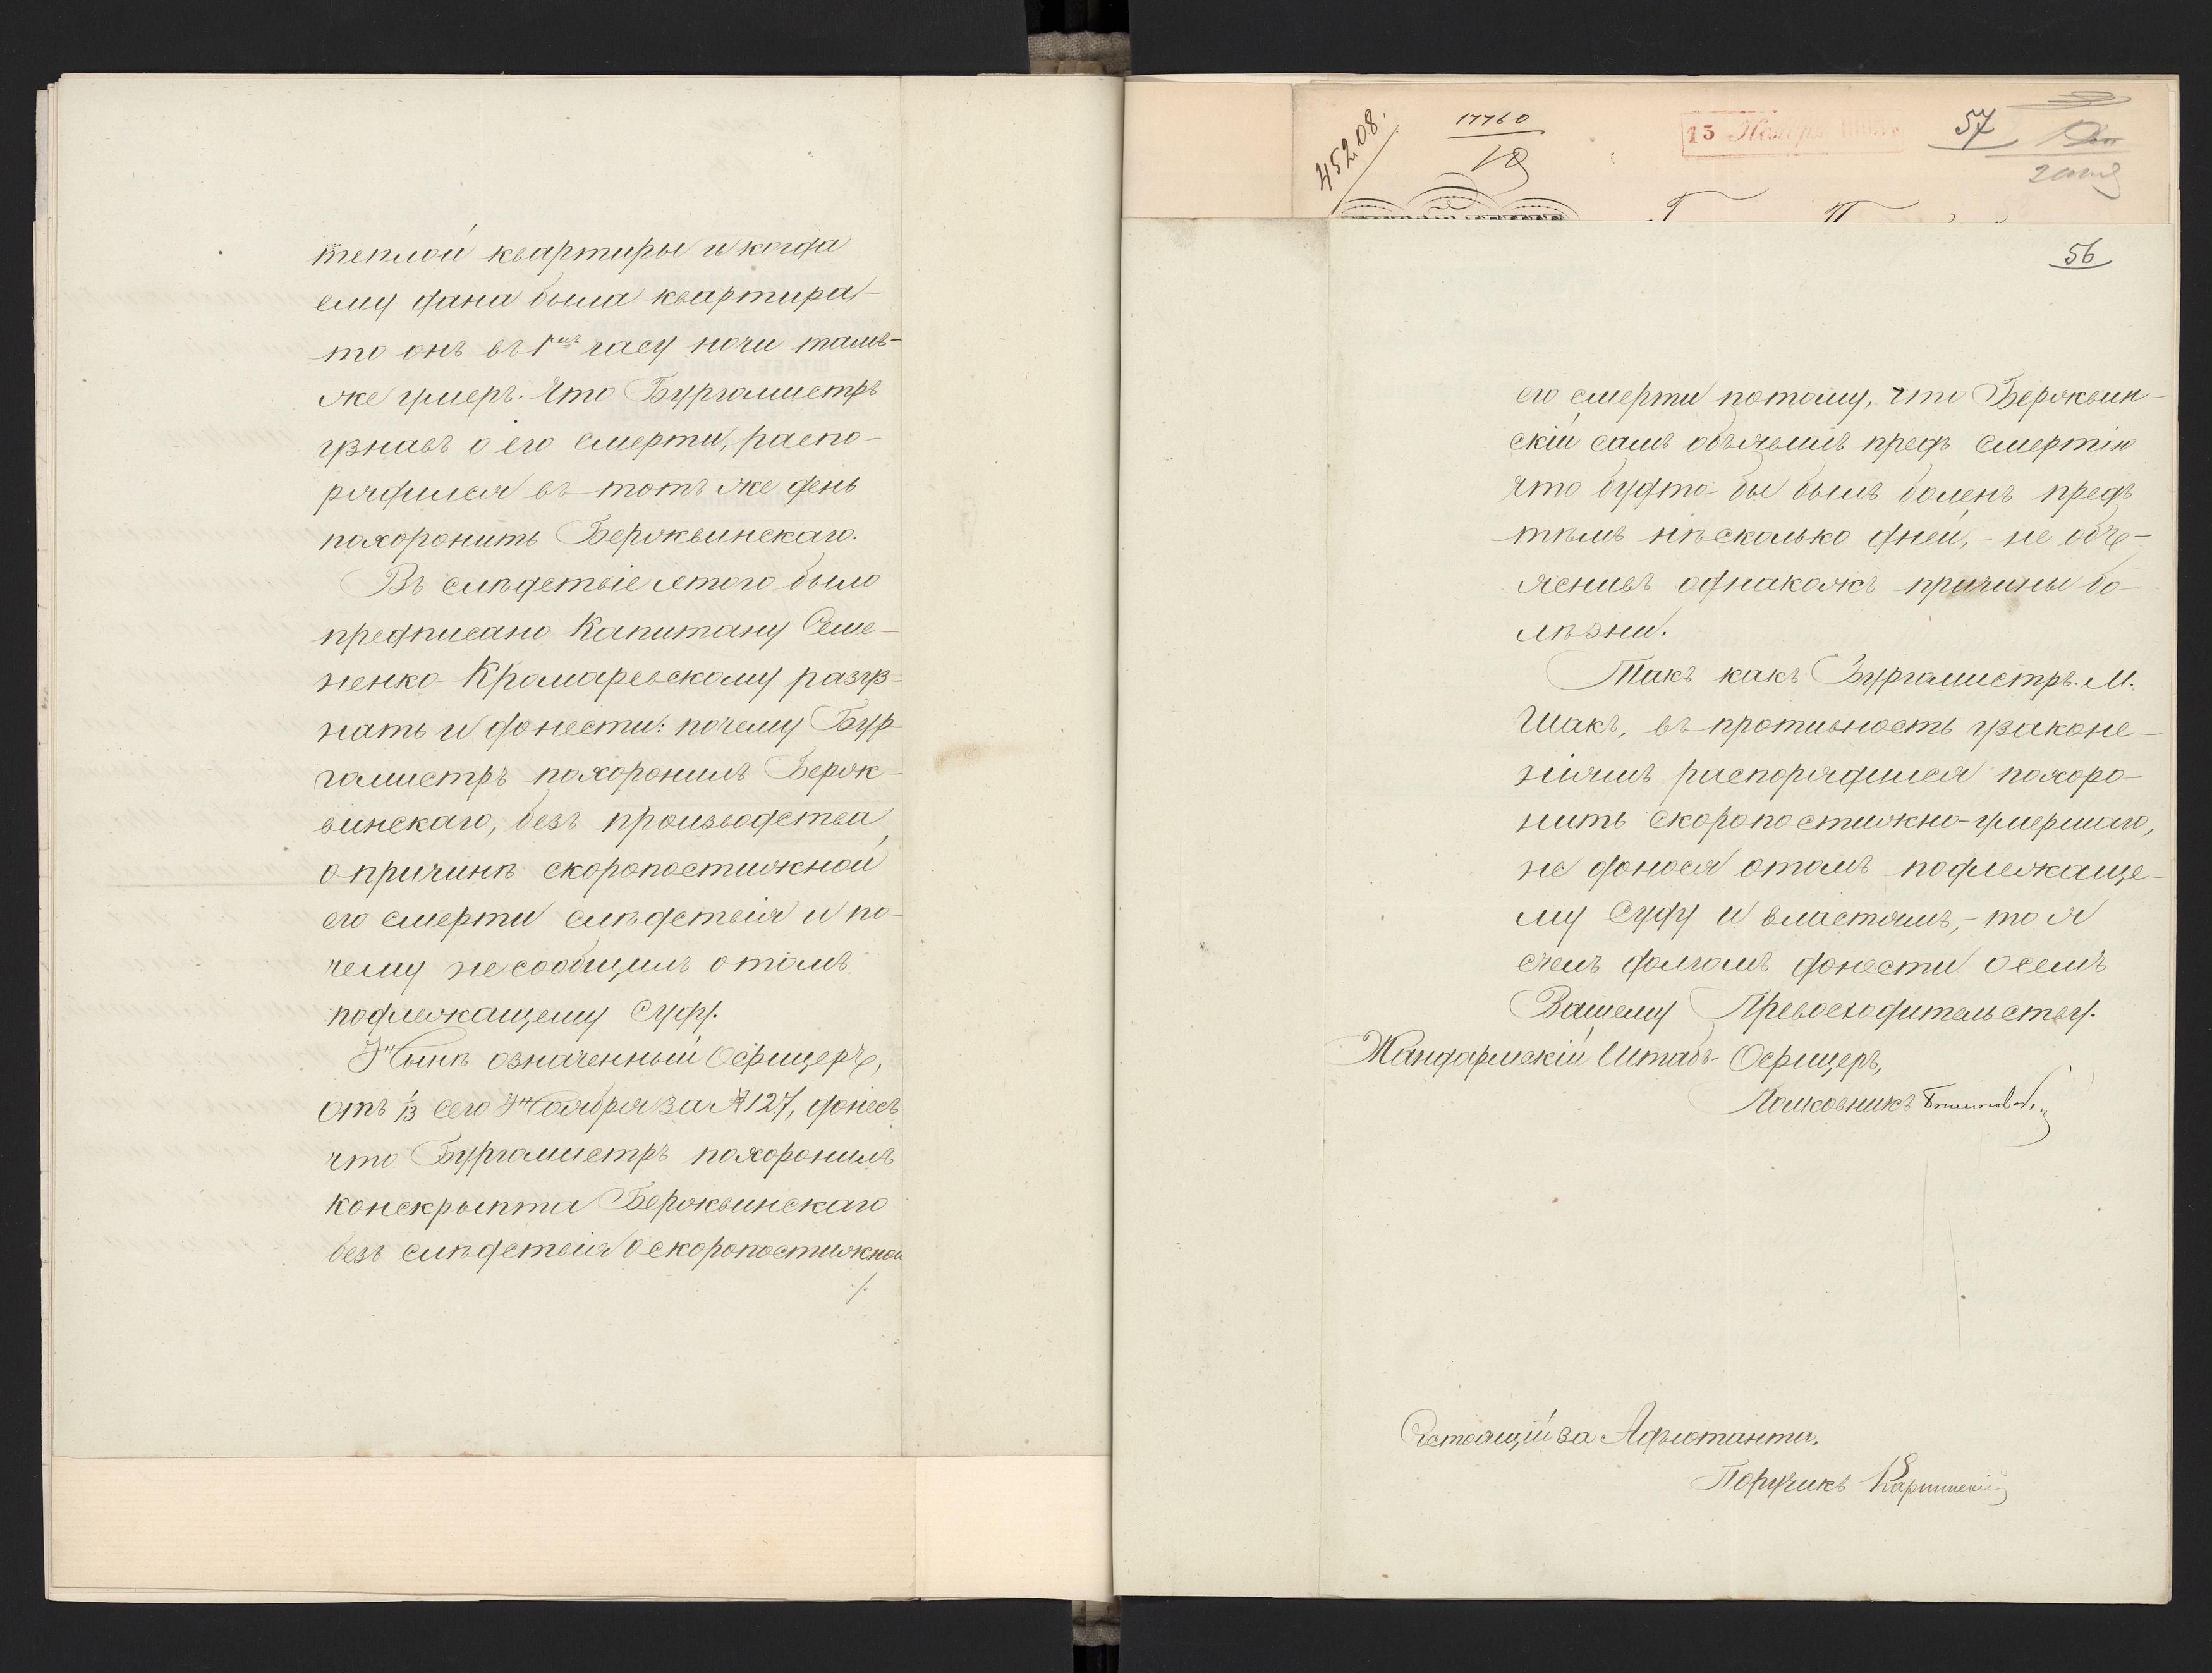 теплой квартиры и когда
ему дана была квартира –
то онъ въ 1мъ часу ночи тамъ-
же умеръ. Что Бургомистръ
узнавъ о его смерти, распо-
рядился въ тотъ же день
похоронить Бержвинскаго.
Въ слѣдствіе этого было
предписано Капитану Семе-
ненко-Крамаревскому разуз-
нать и донести: почему Бур-
гомистръ похоронилъ Берж-
винскаго, безъ производства,
о причинѣ скоропостижной
его смерти слѣдствія и по-
чему не сообщилъ о томъ
подлежащему Суду.
Нынѣ означенный Офицеръ,
отъ 1/13 сего Ноября за № 127, донесъ
что Бургомистръ похоронилъ
конскрыпта Бержвинскаго
безъ слѣдствія о скоропостижной
/.
452.08.
17760
19
13 Ноября
57
56
его смерти потому, что Бержвин-
скій самъ объявилъ предъ смертію
что будто-бы былъ боленъ предъ
тѣмъ нѣсколько дней, – не объ-
яснивъ однакожъ причины бо-
лѣзни.
Такъ какъ Бургомистръ М.
Шакъ, въ противность узаконе-
ніямъ распорядился похоро-
нить скоропостижно-умершаго,
не донося о томъ подлежаще-
му Суду и властямъ, – то я
счелъ долгомъ донести о семъ
Вашему Превосходительству.
Жандармскій Штабъ-Офицеръ,
Полковникъ
Состоящій за Адъютанта,
Поручикъ